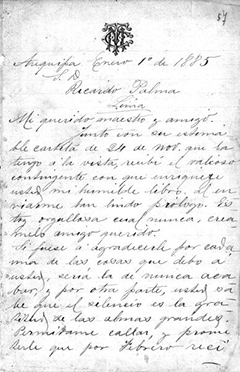 57
Arequipa Enero 1º de 1885
S. D.
Ricardo Palma
Lima
Mi querido maestro y amigo:
junto con su estima
ble cartita de 24 de nov. que la
tengo a la vista, recibí el valioso
contingente con que enriquece
usted mi humilde libro. El en
viarme tan lindo prólogo. Es
toy orgullosa cual nunca, crea
melo amigo querido.
Si fuese á agradecerle por cada
una de las cosas que debo a
usted, sería la de nunca aca
bar, y por otra parte, usted sa
be que el silencio es la gra
titud de las almas grandes.
Permítame callar, y prome
terle que por Febrero reci